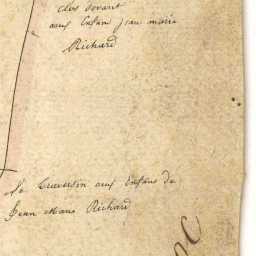 clos devant
aux Enfans jean marie
Richard
le Traversin aux Enfans de
Jean Marie Richard